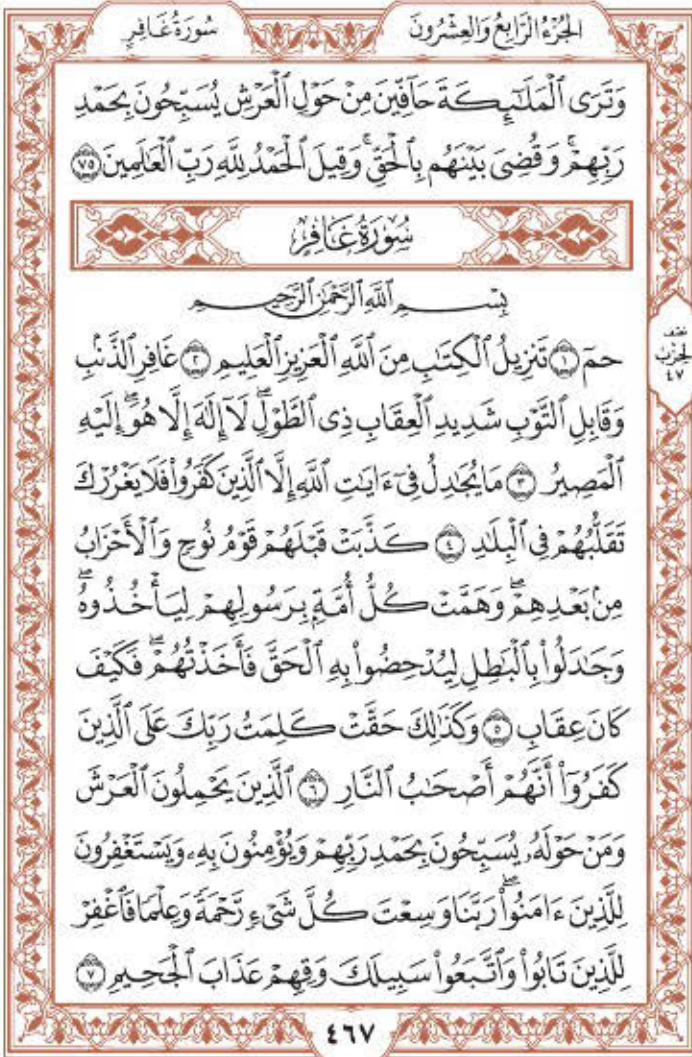 سُورَةُ غَافِرٍ
الجُزْءُ الرَّابِعُ وَالعِشْرُونَ
وَتَرَى ٱلْمَلَـٰٓئِكَةَ حَآفِّينَ مِنْ حَوْلِ ٱلْعَرْشِ يُسَبِّحُونَ بِحَمْدِ
رَبِّهِمْۖ وَقُضِىَ بَيْنَهُم بِٱلْحَقِّۚ وَقِيلَ ٱلْحَمْدُ لِلَّهِ رَبِّ ٱلْعَـٰلَمِينَ ٧٥
سُورَةُ غَافِرٍ
بِسْمِ ٱللَّهِ ٱلرَّحْمَـٰنِ ٱلرَّحِيمِ
حمٓ ١ تَنزِيلُ ٱلْكِتَـٰبِ مِنَ ٱللَّهِ ٱلْعَزِيزِ ٱلْعَلِيمِ ٢ غَافِرِ ٱلذَّنۢبِ
وَقَابِلِ ٱلتَّوْبِ شَدِيدِ ٱلْعِقَابِ ذِى ٱلطَّوْلِۖ لَآ إِلَـٰهَ إِلَّا هُوَۖ إِلَيْهِ
ٱلْمَصِيرُ ٣ مَا يُجَـٰدِلُ فِىٓ ءَايَـٰتِ ٱللَّهِ إِلَّا ٱلَّذِينَ كَفَرُوا۟ فَلَا يَغْرُرْكَ
تَقَلُّبُهُمْ فِى ٱلْبِلَـٰدِ ٤ كَذَّبَتْ قَبْلَهُمْ قَوْمُ نُوحٍ وَٱلْأَحْزَابُ
مِنۢ بَعْدِهِمْۖ وَهَمَّتْ كُلُّ أُمَّةٍۭ بِرَسُولِهِمْ لِيَأْخُذُوهُۖ
وَجَـٰدَلُوا۟ بِٱلْبَـٰطِلِ لِيُدْحِضُوا۟ بِهِ ٱلْحَقَّ فَأَخَذْتُهُمْۖ فَكَيْفَ
كَانَ عِقَابِ ٥ وَكَذَٰلِكَ حَقَّتْ كَلِمَتُ رَبِّكَ عَلَى ٱلَّذِينَ
كَفَرُوٓا۟ أَنَّهُمْ أَصْحَـٰبُ ٱلنَّارِ ٦ ٱلَّذِينَ يَحْمِلُونَ ٱلْعَرْشَ
وَمَنْ حَوْلَهُۥ يُسَبِّحُونَ بِحَمْدِ رَبِّهِمْ وَيُؤْمِنُونَ بِهِۦ وَيَسْتَغْفِرُونَ
لِلَّذِينَ ءَامَنُوا۟ۖ رَبَّنَا وَسِعْتَ كُلَّ شَىْءٍ رَّحْمَةً وَعِلْمًا فَٱغْفِرْ
لِلَّذِينَ تَابُوا۟ وَٱتَّبَعُوا۟ سَبِيلَكَ وَقِهِمْ عَذَابَ ٱلْجَحِيمِ ٧
نصف
الحزب
٤٧
٤٦٧